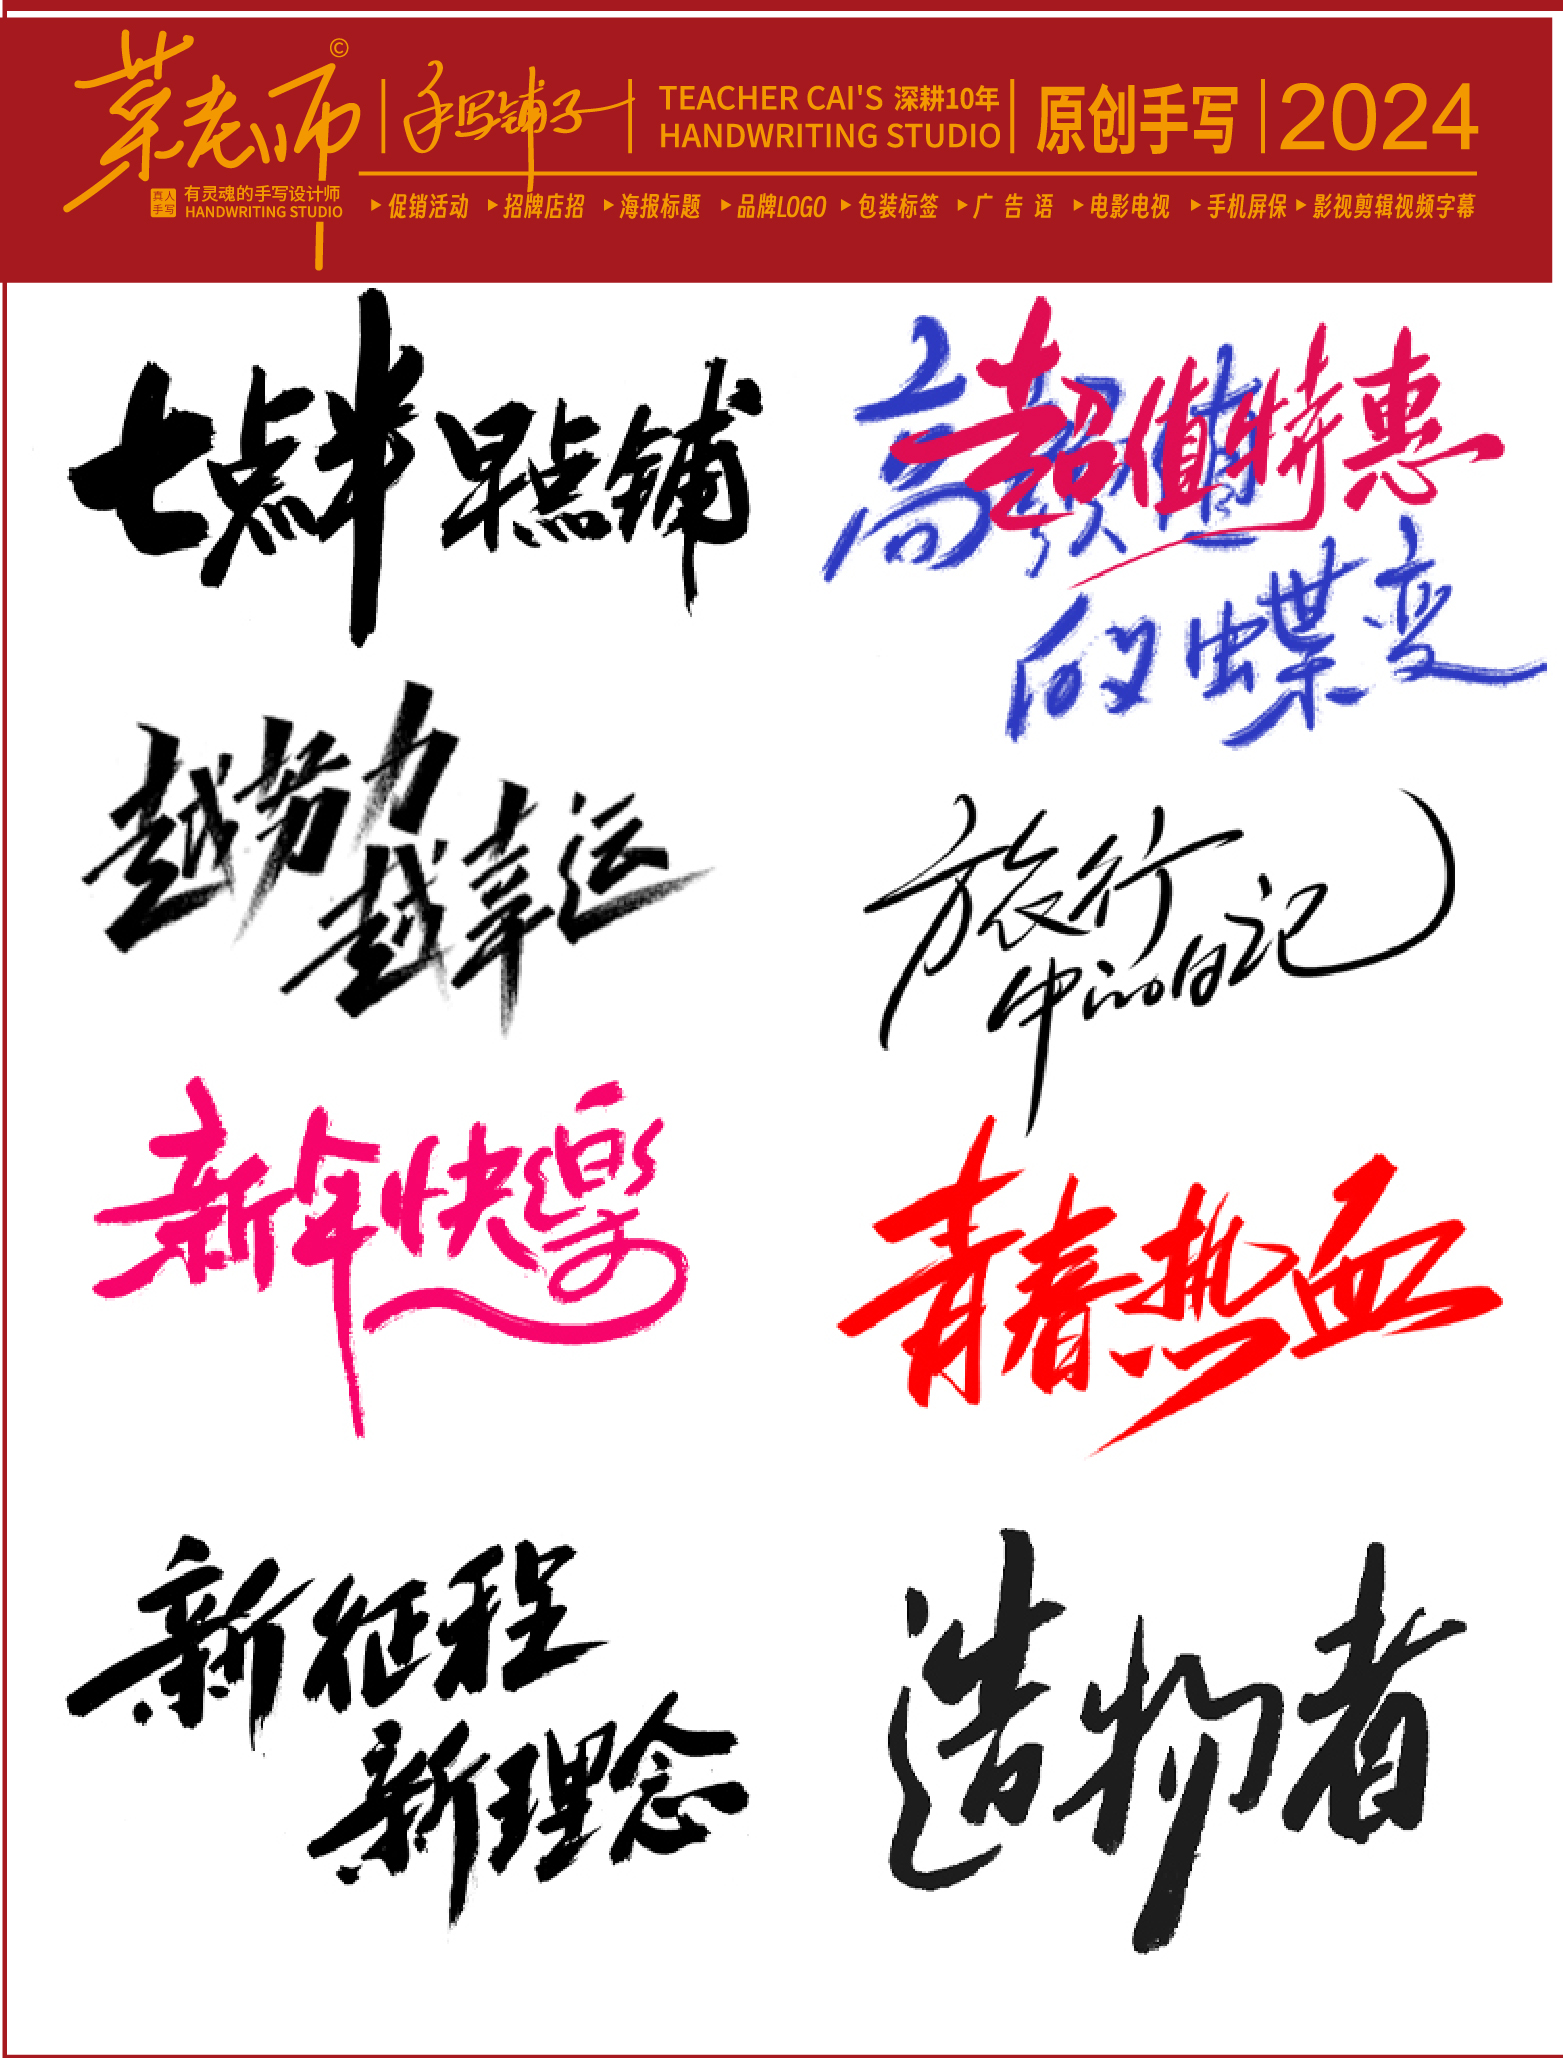 菜老师
©
手写铺子
TEACHER CAI'S 深耕10年
HANDWRITING STUDIO
原创手写
2024
真人
手写
有灵魂的手写设计师
HANDWRITING STUDIO
促销活动 招牌店招 海报标题 品牌LOGO 包装标签 广告语 电影电视 手机屏保 影视剪辑视频字幕
七点半早点铺
超值特惠
高颜值
的蝶变
越努力
越幸运
旅行
中的日记
新年快樂
青春热血
新征程
新理念
造物者